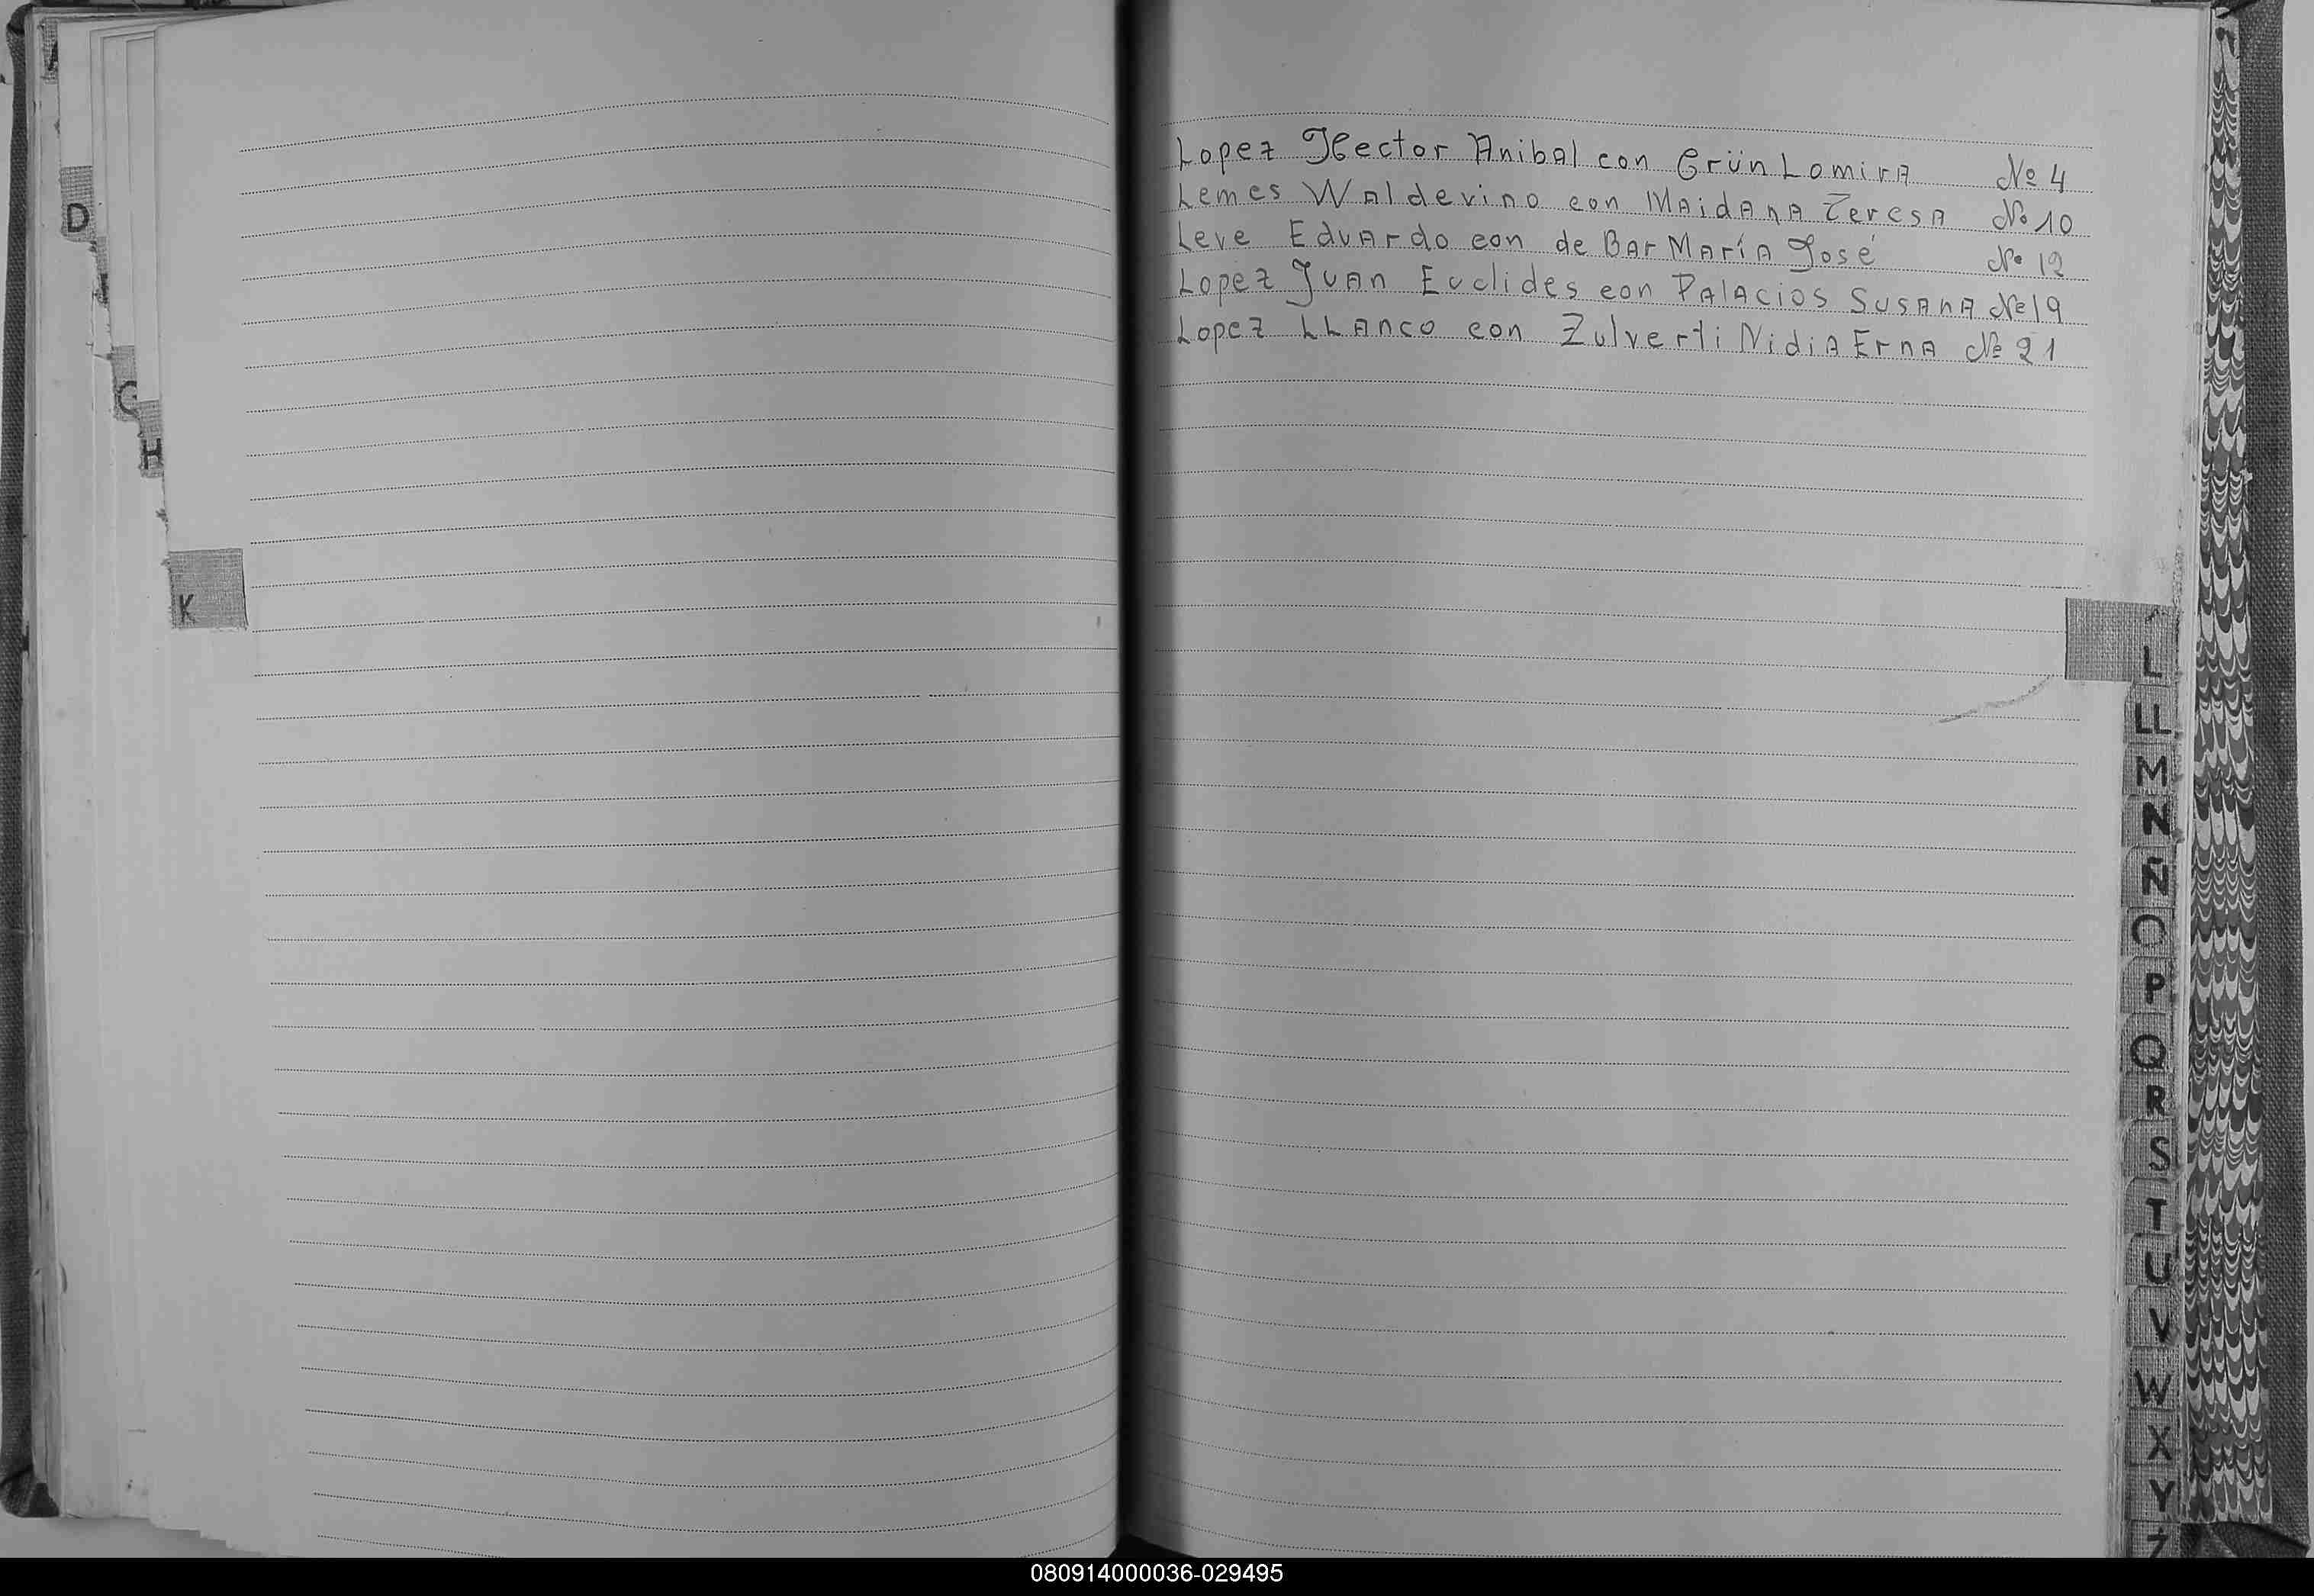 Lopez Hector Anibal con Grün Lomira Nº 4
Lemes Waldevino con Maidana Teresa Nº 10
Leve Eduardo con de Bar María José Nº 12
Lopez Juan Euclides con Palacios Susana Nº 19
Lopez LLanco con Zulverti Nidia Erna Nº 21
D
G
H
K
L
LL
M
N
Ñ
O
P
Q
R
S
T
U
V
W
X
Y
Z
080914000036-029495